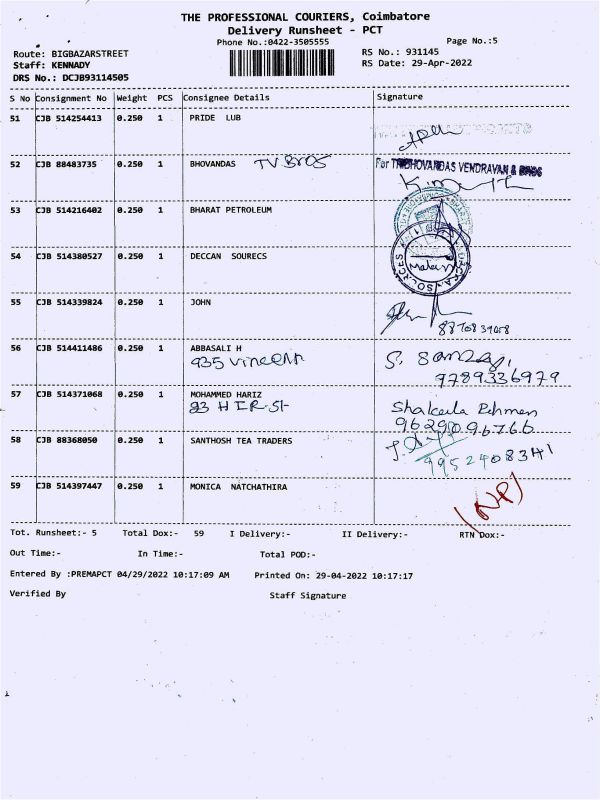 THE PROFESSIONAL COURIERS, Coimbatore
Delivery Runsheet - PCT
Phone No.:0422-3505555
Page No.:5
Route: BIGBAZARSTREET
RS No.: 931145
Staff: KENNADY
RS Date: 29-Apr-2022
DRS No.: DCJB93114505
S No Consignment No Weight PCS Consignee Details Signature
51 CJB 514254413 0.250 1 PRIDE LUB
52 CJB 88483735 0.250 1 BHOVANDAS TV Bros For TRIBHOVANDAS VENDRAVAN & BROS
53 CJB 514216402 0.250 1 BHARAT PETROLEUM
54 CJB 514380527 0.250 1 DECCAN SOURECS DECCAN SOURCES
55 CJB 514339824 0.250 1 JOHN
56 CJB 514411486 0.250 1 ABBASALI H
935 Vincent
9789336979
57 CJB 514371068 0.250 1 MOHAMMED HARIZ
93 H I R. St Shakeela Rehman
9629096766
58 CJB 88368050 0.250 1 SANTHOSH TEA TRADERS
9952408341
59 CJB 514397447 0.250 1 MONICA NATCHATHIRA
(NP)
Tot. Runsheet:- 5 Total Dox:- 59 I Delivery:- II Delivery:- RTN Dox:-
Out Time:- In Time:- Total POD:-
Entered By :PREMAPCT 04/29/2022 10:17:09 AM Printed On: 29-04-2022 10:17:17
Verified By Staff Signature